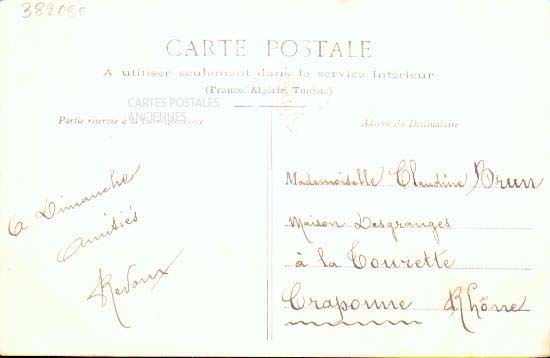 382080
CARTE POSTALE
A utiliser seulement dans le service intérieur
(France, Algérie, Tunisie)
CARTES POSTALES
ANCIENNES
Partie réservée à la Correspondance
Adresse du Destinataire
A Dimanche
Amitiés
Mademoiselle Claudine Brun
Maison Desgranges
à la Tourette
Craponne Rhône